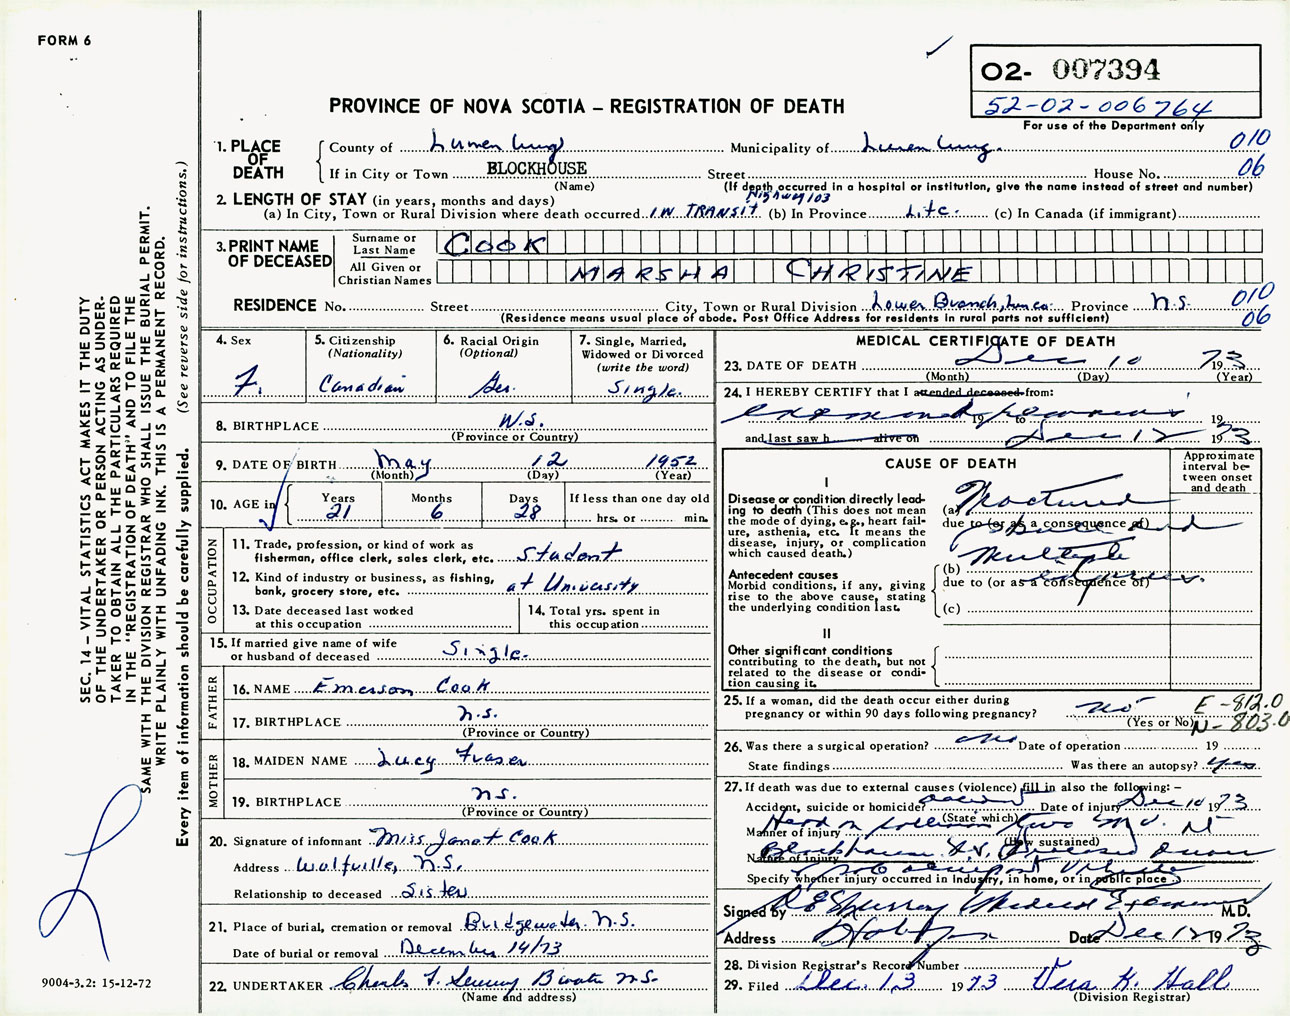 FORM 6
O2- 007394
52-02-006764
For use of the Department only
PROVINCE OF NOVA SCOTIA – REGISTRATION OF DEATH
1. PLACE OF DEATH
County of Lunenburg Municipality of Lunenburg. 010
If in City or Town BLOCKHOUSE Street House No. 06
(Name) (If death occurred in a hospital or institution, give the name instead of street and number)
2. LENGTH OF STAY (in years, months and days) Highway 103
(a) In City, Town or Rural Division where death occurred IN TRANSIT (b) In Province Life. (c) In Canada (if immigrant)
3. PRINT NAME OF DECEASED
Surname or Last Name COOK
All Given or Christian Names MARSHA CHRISTINE
RESIDENCE No. Street City, Town or Rural Division Lower Branch, Lun Co. Province N.S. 010
(Residence means usual place of abode. Post Office Address for residents in rural parts not sufficient) 06
4. Sex
F.
5. Citizenship
(Nationality)
Canadian
6. Racial Origin
(Optional)
Ger.
7. Single, Married,
Widowed or Divorced
(write the word)
Single.
8. BIRTHPLACE N.S.
(Province or Country)
9. DATE OF BIRTH May 12 1952
(Month) (Day) (Year)
10. AGE in
Years Months Days If less than one day old
21 6 28 hrs. or min.
OCCUPATION
11. Trade, profession, or kind of work as
fisherman, office clerk, sales clerk, etc. Student
12. Kind of industry or business, as fishing,
bank, grocery store, etc. at University
13. Date deceased last worked
at this occupation
14. Total yrs. spent in
this occupation
15. If married give name of wife
or husband of deceased Single.
FATHER
16. NAME Emerson Cook
17. BIRTHPLACE N.S.
(Province or Country)
MOTHER
18. MAIDEN NAME Lucy Fraser
19. BIRTHPLACE N.S.
(Province or Country)
20. Signature of informant Miss Janet Cook
Address Wolfville, N.S.
Relationship to deceased Sister
21. Place of burial, cremation or removal Bridgewater N.S.
Date of burial or removal December 14/73
22. UNDERTAKER Charles F. N.S.
(Name and address)
MEDICAL CERTIFICATE OF DEATH
23. DATE OF DEATH Dec 10 1973
(Month) (Day) (Year)
24. I HEREBY CERTIFY that I attended deceased from:
examined 19 to 19
and last saw h alive on Dec 12 1973
CAUSE OF DEATH
Approximate
interval be-
tween onset
and death
I
Disease or condition directly lead-
ing to death (This does not mean
the mode of dying, e.g., heart fail-
ure, asthenia, etc. It means the
disease, injury, or complication
which caused death.)
(a) Fractured
due to (or as a consequence of)
skull and
Antecedent causes
Morbid conditions, if any, giving
rise to the above cause, stating
the underlying condition last.
Multiple
(b)
due to (or as a consequence of)
injuries.
(c)
II
Other significant conditions
contributing to the death, but not
related to the disease or condi-
tion causing it.
25. If a woman, did the death occur either during
pregnancy or within 90 days following pregnancy? no
(Yes or No)
E-812.0
N-803.0
26. Was there a surgical operation? no Date of operation 19
State findings Was there an autopsy? yes
27. If death was due to external causes (violence) fill in also the following: –
Accident, suicide or homicide? accident Date of injury Dec 10 1973
(State which)
Manner of injury Head on collision two M.V. at
(How sustained)
Nature of injury Blockhouse N.S. Deceased
Specify whether injury occurred in Industry, in home, or in public place
Signed by Murray Medical Examiner M.D.
Address Date Dec 12 1973
28. Division Registrar's Record Number
29. Filed Dec. 13 1973 Vera K. Hall
(Division Registrar)
SEC. 14 – VITAL STATISTICS ACT MAKES IT THE DUTY
OF THE UNDERTAKER OR PERSON ACTING AS UNDER-
TAKER TO OBTAIN ALL THE PARTICULARS REQUIRED
IN THE "REGISTRATION OF DEATH" AND TO FILE THE
SAME WITH THE DIVISION REGISTRAR WHO SHALL ISSUE THE BURIAL PERMIT.
WRITE PLAINLY WITH UNFADING INK. THIS IS A PERMANENT RECORD.
Every item of information should be carefully supplied. (See reverse side for instructions.)
9004-3.2: 15-12-72